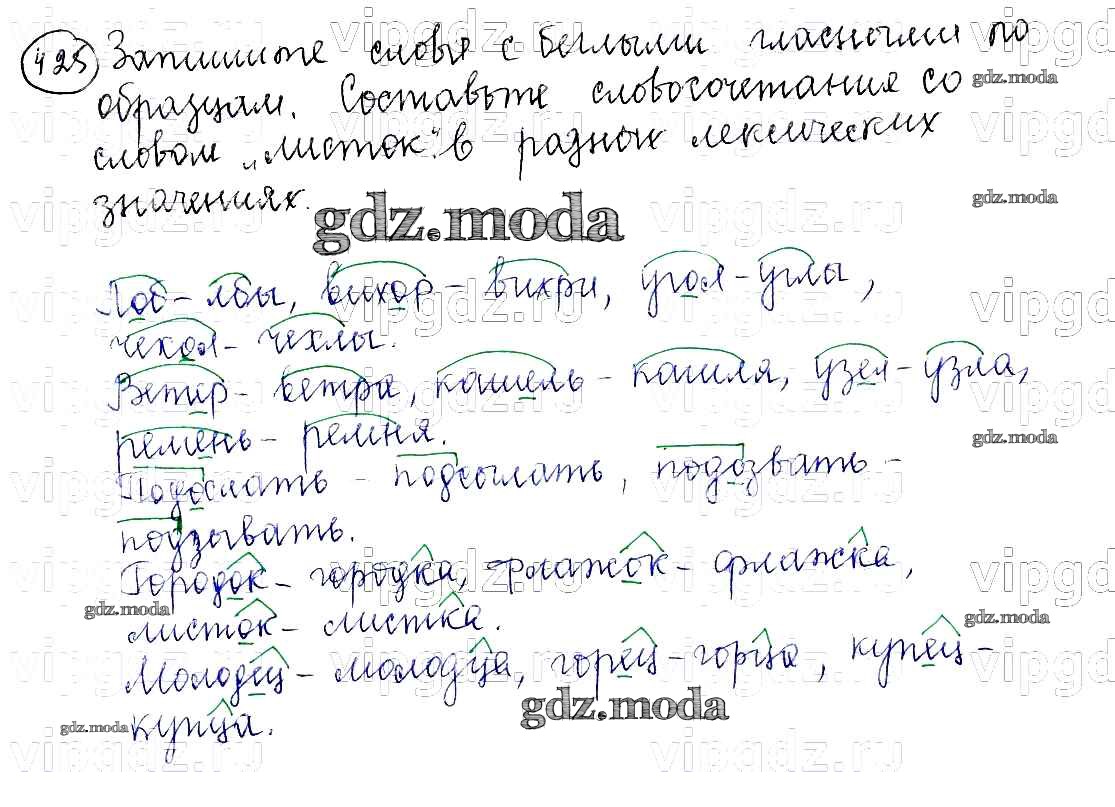 425 Запишите слова с беглыми гласными по
образцам. Составьте словосочетания со
словом „листок" в разных лексических
значениях.
gdz.moda
Лоб - лбы, вихор - вихри, угол - углы,
чехол - чехлы.
Ветер - ветра, кашель - кашля, узел - узла,
ремень - ремня.
Подослать - подсылать, подозвать -
подзывать.
Городок - городка, флажок - флажка,
листок - листка.
Молодец - молодца, горец - горца, купец -
купца.
gdz.moda